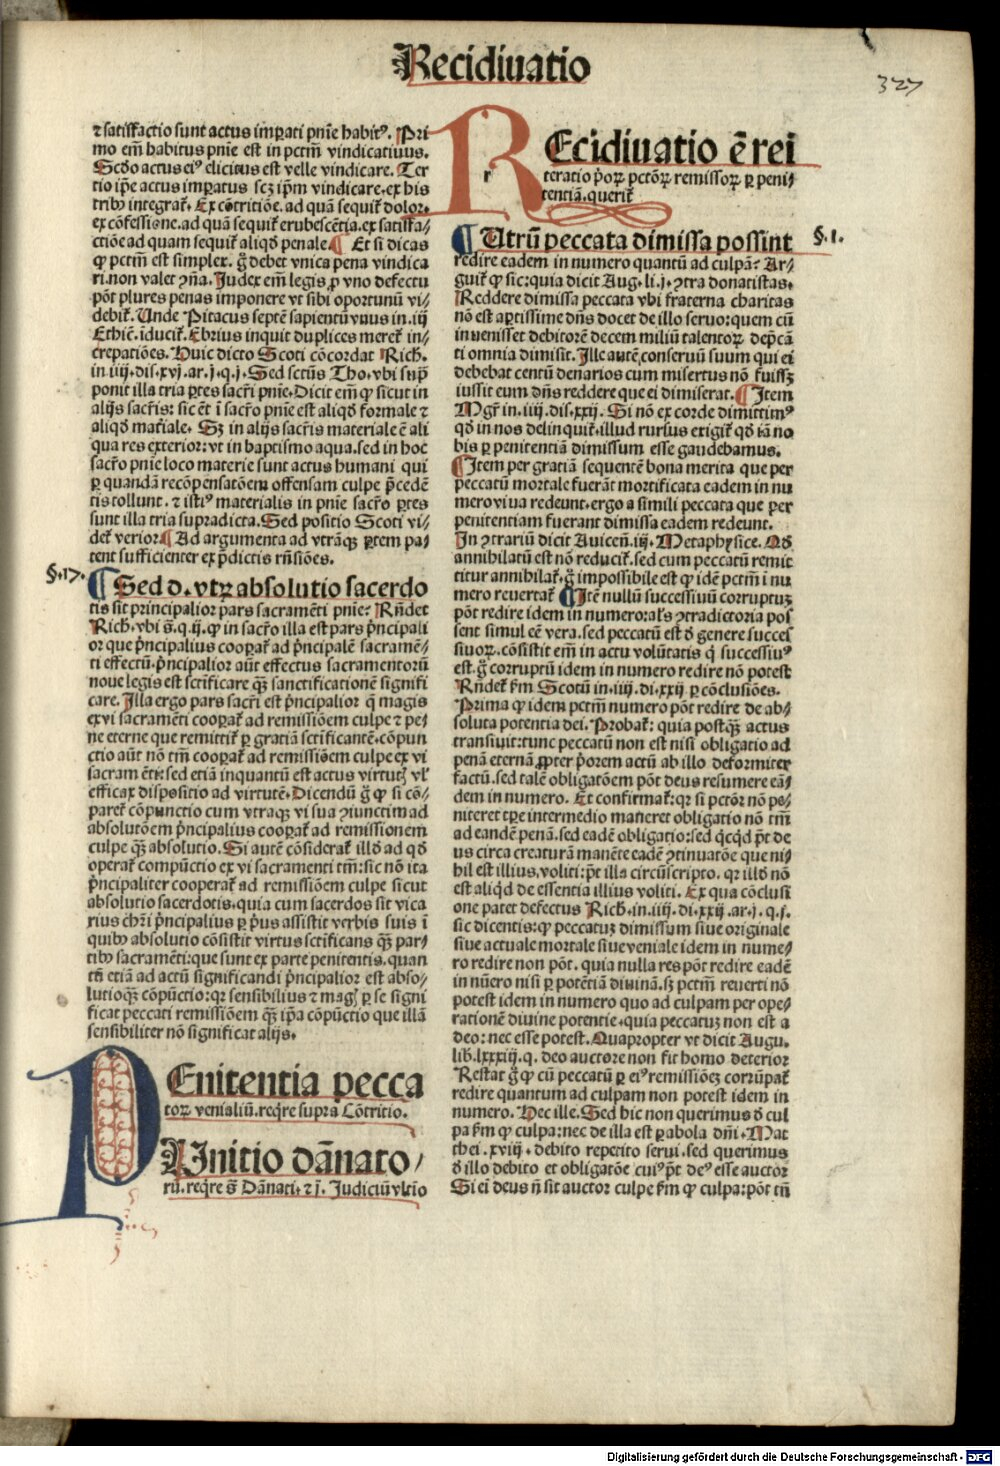 Recidiuatio
327
⁊ satiſfactio sunt actus imꝑati pnīe habitꝰ. Pri
mo em̄ habitus pnīe est in pctm̄ vindicatiuus.
Scdo actus eiꝰ elicitus est velle vindicare. Ter
tio ip̄e actus imꝑatus scꝫ ip̄m vindicare. ex his
tribꝰ integrat̄. Ex cōtritiōe. ad quā sequit̄ dolor.
ex cōfessione. ad quā sequit̄ erubescētia. ex satiſfa-
ctiōe ad quam sequit̄ aliqd̄ penale. ¶ Et si dicas
ꝙ pctm̄ est simplex. g̊ debet vnica pena vindica
ri. non valet ꝯn̄a. Judex em̄ legis ꝓ vno defectu
pōt plures penas imponere vt sibi oportunū vi-
debit̄. Unde Pitacus septē sapientū vnus in .iij
Ethic̄. īducit̄. Ebrius inquit duplices meret̄ in-
crepatiōes. Huic dicto Scoti cōcordat Rich.
in .iiij. dis. xvj. ar. j. q. j. Sed sctūs Tho. vbi sup̄
ponit illa tria ꝑtes sacr̄i pnīe. Dicit em̄ ꝙ sicut in
alijs sacr̄is: sic ēt ī sacr̄o pnīe est aliqd̄ formale ⁊
aliqd̄ mat̄iale. Sꝫ in alijs sacr̄is materiale ē ali
qua res exterior: vt in baptismo aqua. sed in hoc
sacr̄o pnīe loco materie sunt actus humani qui
ꝑ quandā recōpensatōem offensam culpe p̄cedē
tis tollunt. ⁊ istiꝰ materialis in pnīe sacr̄o ꝑtes
sunt illa tria supradicta. Sed positio Scoti vi-
det̄ verior. ¶ Ad argumenta ad vtrāqꝫ ꝑtem pa-
tent sufficienter ex p̄dictis rn̄siōes.
§.17.
¶ Sed d. vtꝝ absolutio sacerdo
tis sit principalior pars sacramēti pnīe? Rn̄det
Rich. vbi s̄. q. ij. ꝙ in sacr̄o illa est pars p̄ncipali
or que p̄ncipalius coopat̄ ad p̄ncipalē sacramē-
ti effectū. p̄ncipalior aūt effectus sacramentorū
noue legis est scīficare qꝫ̄ sanctificationē signifi
care. Illa ergo pars sacr̄i est p̄ncipalior q̄ magis
ex vi sacramēti coopat̄ ad remissiōem culpe ⁊ pe-
ne eterne que remittit̄ ꝑ gratiā scīficantē. cōpun
ctio aūt nō tm̄ coopat̄ ad remissiōem culpe ex vi
sacramēti: sed etiā inquantū est actus virtutꝭ vl̓
efficax dispositio ad virtutē. Dicendū g̊ ꝙ si cō-
paret̄ cōpunctio cum vtraqꝫ vi sua ꝯiunctim ad
absolutōem p̄ncipalius coopat̄ ad remissionem
culpe qꝫ̄ absolutio. Si autē cōsiderat̄ illd̄ ad qd̄
operat̄ compūctio ex vi sacramenti tm̄: sic nō ita
p̄ncipaliter cooperat̄ ad remissiōem culpe sicut
absolutio sacerdotis. quia cum sacerdos sit vica
rius chr̄i p̄ncipalius ꝑ p̄us assistit verbis suis ī
quibꝰ absolutio cōsistit virtus scīficans qꝫ̄ par-
tibꝰ sacramēti: que sunt ex parte penitentis. quan
tū etiā ad actū significandi p̄ncipalior est abso-
lutio qꝫ̄ cōpūctio: qꝛ sensibilius ⁊ magꝭ ꝑ se signi
ficat peccati remissiōem qꝫ̄ ip̄a cōpūctio que illā
sensibiliter nō significat alijs.
PEnitentia pecca
toꝝ venialiū. reqr̄e supra Cōtritio.
PUnitio dānato-
rū. reqr̄e s̄ Dānati. ⁊ j. Judiciū vltio
REcidiuatio ē rei
teratio p̄oꝝ pctōꝝ remissoꝝ ꝑ peni-
tentiā. querit̄
§.1.
¶ Utrū peccata dimissa possint
redire eadem in numero quantū ad culpā? Ar-
guit̄ ꝙ sic: quia dicit Aug. li. j. ꝯtra donatistas.
Reddere dimissa peccata vbi fraterna charitas
nō est aptissime dn̄s docet de illo seruo: quem cū
inuenisset debitorē decem miliū talentoꝝ dep̄cā
ti omnia dimisit. Ille autē conseruū suum qui ei
debebat centū denarios cum misertus nō fuissꝫ
iussit eum dn̄s reddere que ei dimiserat. ¶ Item
Mgr̄ in .iiij. dis. xxij. Si nō ex corde dimittimꝰ
qd̄ in nos delinquit̄. illud rursus exigit̄ qd̄ iā no
bis ꝑ penitentiā dimissum esse gaudebamus.
¶ Item per gratiā sequentē bona merita que per
peccatū mortale fuerāt mortificata eadem in nu
mero viua redeunt. ergo a simili peccata que per
penitentiam fuerant dimissa eadem redeunt.
In ꝯtrariū dicit Auicen̄. iij. Metaphysice. Qd̄
annihilatū est nō reducit̄. sed cum peccatū remit
titur annihilat̄. g̊ impossibile est ꝙ idē pctm̄ ī nu
mero reuertat̄ ¶ Itē nullū successiuū corruptuꝫ
pōt redire idem in numero: al̓s ꝯtradictoria pos
sent simul eē vera. sed peccatū est d̓ genere succes
siuoꝝ. cōsistit em̄ in actu volūtatis q̄ successiuꝰ
est. g̊ corruptū idem in numero redire nō potest
Rn̄det̄ ẜm Scotū in .iiij. di. xxij ꝑ cōclusiōes.
Prima ꝙ idem pctm̄ numero pōt redire de ab-
soluta potentia dei. Probat̄: quia postqꝫ̄ actus
transiuit: tunc peccatū non est nisi obligatio ad
penā eternā ꝓpter p̄orem actū ab illo deformiter
factū. sed talē obligatōem pōt deus resumere eā-
dem in numero. Et confirmat̄: qꝛ si pctōr nō pe-
niteret tp̄e intermedio maneret obligatio nō tm̄
ad eandē penā. sed eadē obligatio: sed qcqd̄ p̄t de
us circa creaturā manēte eadē ꝯtinuatōe que ni-
hil est illius, voliti: p̄t illa circūscripto. qꝛ illd̄ nō
est aliqd̄ de essentia illius voliti. Ex qua cōclusi
one patet defectus Rich. in .iiij. di. xxij. ar. j. q. j.
sic dicentis: ꝙ peccatuꝫ dimissum siue originale
siue actuale mortale siue veniale idem in nume-
ro redire non pōt. quia nulla res pōt redire eadē
in nūero nisi ꝑ potētiā diuinā. sꝫ pctm̄ reuerti nō
potest idem in numero quo ad culpam per ope-
rationē diuine potentie. quia peccatuꝫ non est a
deo: nec esse potest. Quapropter vt dicit Augu.
lib. lxxxiij. q. deo auctore non fit homo deterior
Restat g̊ ꝙ cū peccatū ꝑ eiꝰ remissiōeꝫ corrūpat̄
redire quantum ad culpam non potest idem in
numero. Hec ille. Sed hic non querimus d̓ cul
pa ẜm ꝙ culpa: nec de illa est ꝑabola dn̄i. Mat
thei. xviij. debito repetito serui. sed querimus
d̓ illo debito et obligatōe cuiꝰ p̄t deꝰ esse auctor
Si em̄ deus n̄ sit auctor culpe ẜm ꝙ culpa: pōt tn̄
Digitalisierung gefördert durch die Deutsche Forschungsgemeinschaft - DFG